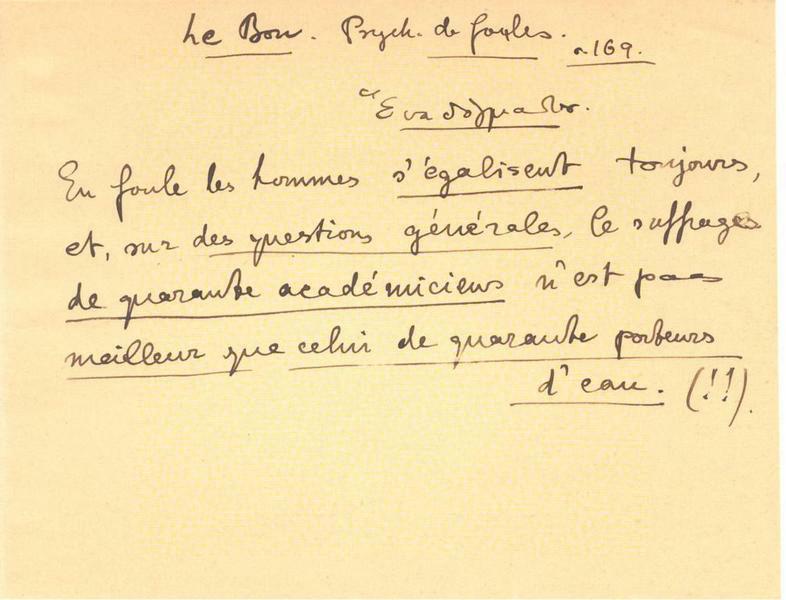 Le Bon. Psych. de foules. σ. 169.
Ἕνα δόγμα του.
En foule les hommes s'égalisent toujours,
et, sur des questions générales, le suffrages
de quarante académiciens n'est pas
meilleur que celui de quarante porteurs
d'eau. (!!).